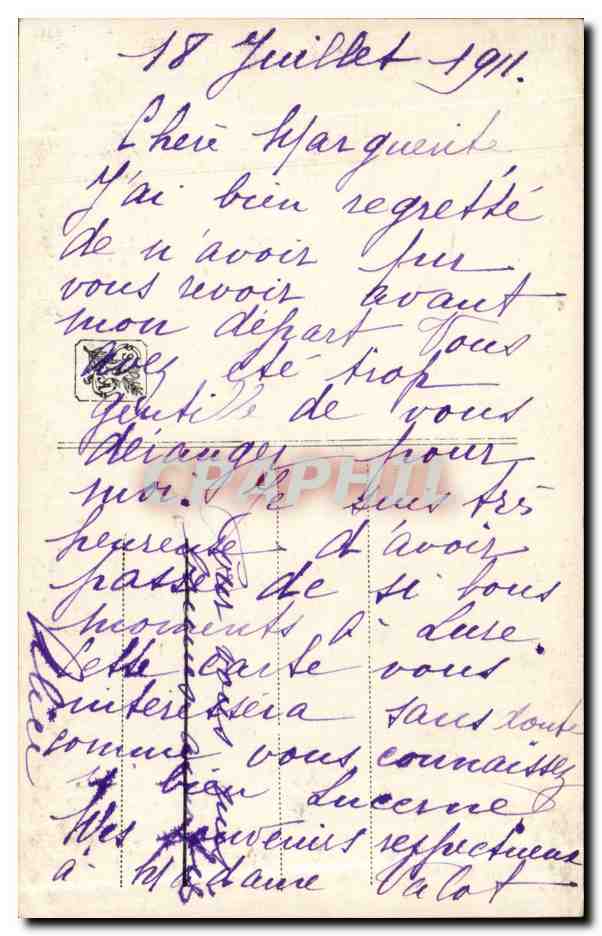 18 Juillet 1911.
Chère Marguerite,
J'ai bien regretté
de n'avoir pur
vous revoir avant
mon départ Vous
avez été trop
gentille de vous
déranger pour
moi. Je suis très
heureuse d'avoir
passé de si bons
moments à Lure.
Cette carte vous
interessera sans doute
comme vous connaissez
si bien Lucerne.
Mes souvenirs respectueux
à Madame Valot
CPAPHIL